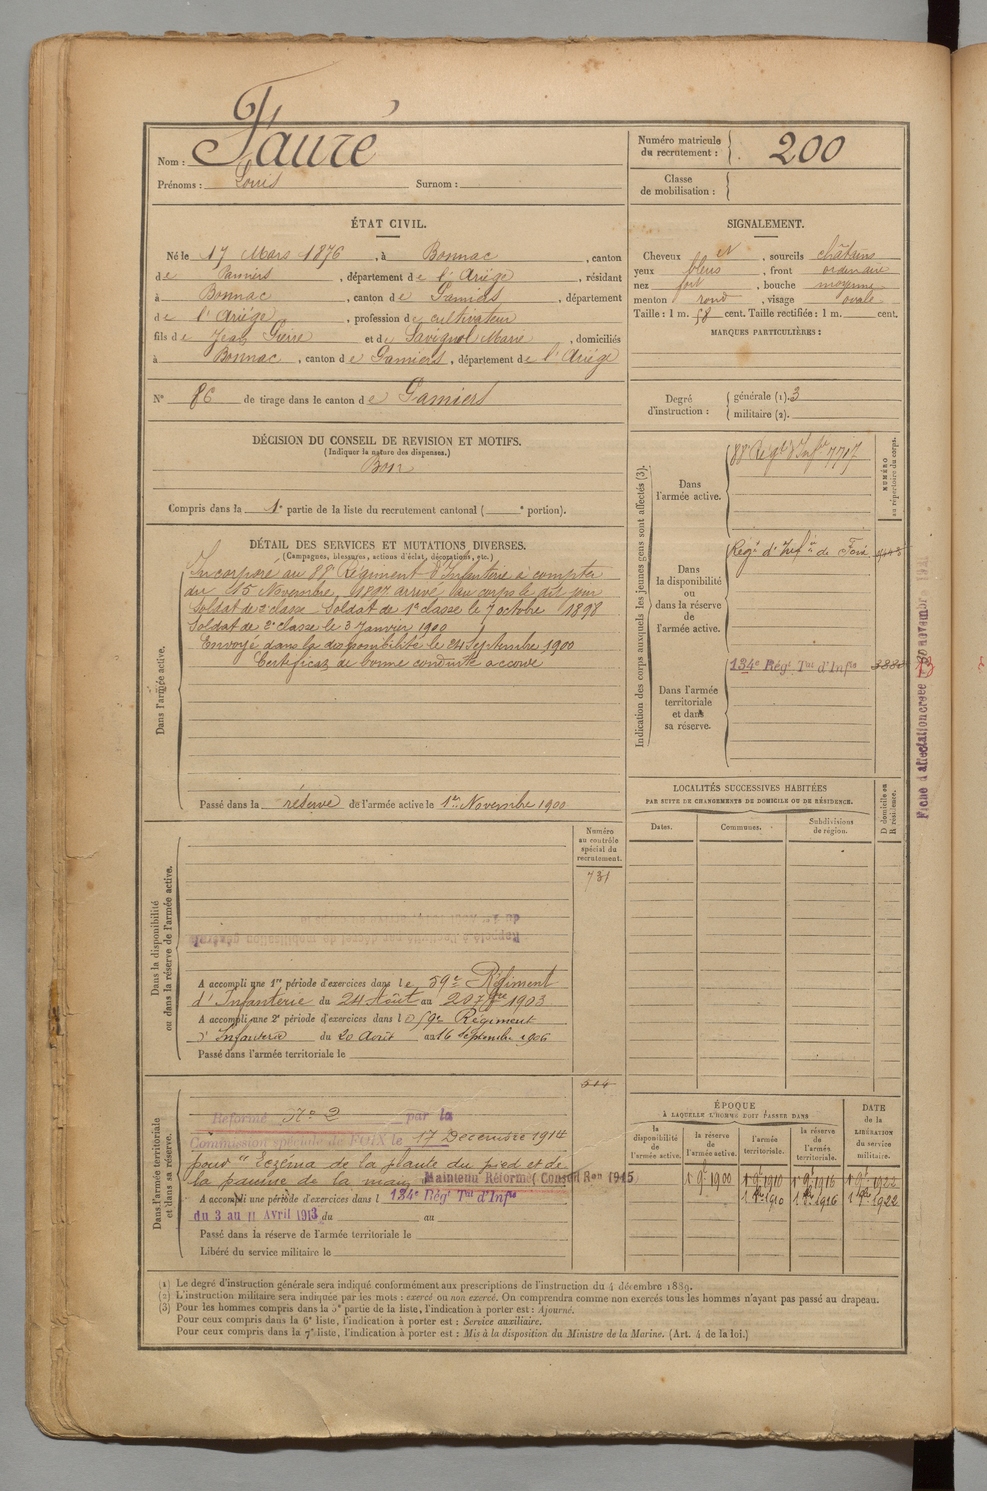 Nom : Fauré
Prénoms : Louis Surnom :
Numéro matricule du recrutement : 200
Classe de mobilisation :
ÉTAT CIVIL.
Né le 17 Mars 1876, à Bonnac, canton
de Pamiers, département de l'Ariége, résidant
à Bonnac, canton de Pamiers, département
de l'Ariége, profession de cultivateur
fils de Jean Pierre et de Savignol Marie, domiciliés
à Bonnac, canton de Pamiers, département de l'Ariége
N° 86 de tirage dans le canton de Pamiers
SIGNALEMENT.
Cheveux et, sourcils châtains
yeux bleus, front ordinaire
nez fort, bouche moyenne
menton rond, visage ovale
Taille : 1 m. 58 cent. Taille rectifiée : 1 m. cent.
MARQUES PARTICULIÈRES :
Degré d'instruction : générale (1). 3
militaire (2).
DÉCISION DU CONSEIL DE REVISION ET MOTIFS.
(Indiquer la nature des dispenses.)
Bon
Compris dans la 1e partie de la liste du recrutement cantonal ( e portion).
DÉTAIL DES SERVICES ET MUTATIONS DIVERSES.
(Campagnes, blessures, actions d'éclat, décorations, etc.)
Dans l'armée active.
Incorporé au 88e Régiment d'Infanterie à compter
du 15 Novembre 1897 arrivé au corps le dit jour
Soldat de 2e classe Soldat de 1e classe le 7 octobre 1898
Soldat de 2e classe le 3 Janvier 1900
Envoyé dans la disponibilité le 24 Septembre 1900
Certificat de bonne conduite accordé
Passé dans la réserve de l'armée active le 1er Novembre 1900
Indication des corps auxquels les jeunes gens sont affectés (3).
NUMÉRO au répertoire du corps.
Dans l'armée active.
88e Régt d'Infie 7717
Dans la disponibilité ou dans la réserve de l'armée active.
Régt d'Infie de Foix
Dans l'armée territoriale et dans sa réserve.
134e Régt Tal d'Infie
13
Fiche d'affectation créée
LOCALITÉS SUCCESSIVES HABITÉES
PAR SUITE DE CHANGEMENTS DE DOMICILE OU DE RÉSIDENCE.
Dates. Communes. Subdivisions de région.
D domicile ou R résidence.
Dans la disponibilité ou dans la réserve de l'armée active.
Numéro au contrôle spécial du recrutement.
731
A accompli une 1re période d'exercices dans le 59e Régiment
d'Infanterie du 24 Août au 20 7bre 1903
A accompli une 2e période d'exercices dans le 59e Régiment
d'Infanterie du 20 Août au 16 Septembre 1906
Passé dans l'armée territoriale le
514
Dans l'armée territoriale et dans sa réserve.
Réformé N° 2 par la
Commission spéciale de FOIX le 17 Décembre 1914
pour "Eczéma de la plante du pied et de
la paume de la main Maintenu Réformé (Conseil Ron 1915
A accompli une période d'exercices dans l 134e Régt Tal d'Infie
du 3 au 11 Avril 1913 du au
Passé dans la réserve de l'armée territoriale le
Libéré du service militaire le
ÉPOQUE
À LAQUELLE L'HOMME DOIT PASSER DANS
DATE de la LIBÉRATION du service militaire.
la disponibilité de l'armée active. la réserve de l'armée active. l'armée territoriale. la réserve de l'armée territoriale.
1 9e 1900 1 9e 1910 1 9e 1916 1 9e 1922
1910 1916 1922
(1) Le degré d'instruction générale sera indiqué conformément aux prescriptions de l'instruction du 4 décembre 1889.
(2) L'instruction militaire sera indiquée par les mots : exercé ou non exercé. On comprendra comme non exercés tous les hommes n'ayant pas passé au drapeau.
(3) Pour les hommes compris dans la 5e partie de la liste, l'indication à porter est : Ajourné.
Pour ceux compris dans la 6e liste, l'indication à porter est : Service auxiliaire.
Pour ceux compris dans la 7e liste, l'indication à porter est : Mis à la disposition du Ministre de la Marine. (Art. 4 de la loi.)